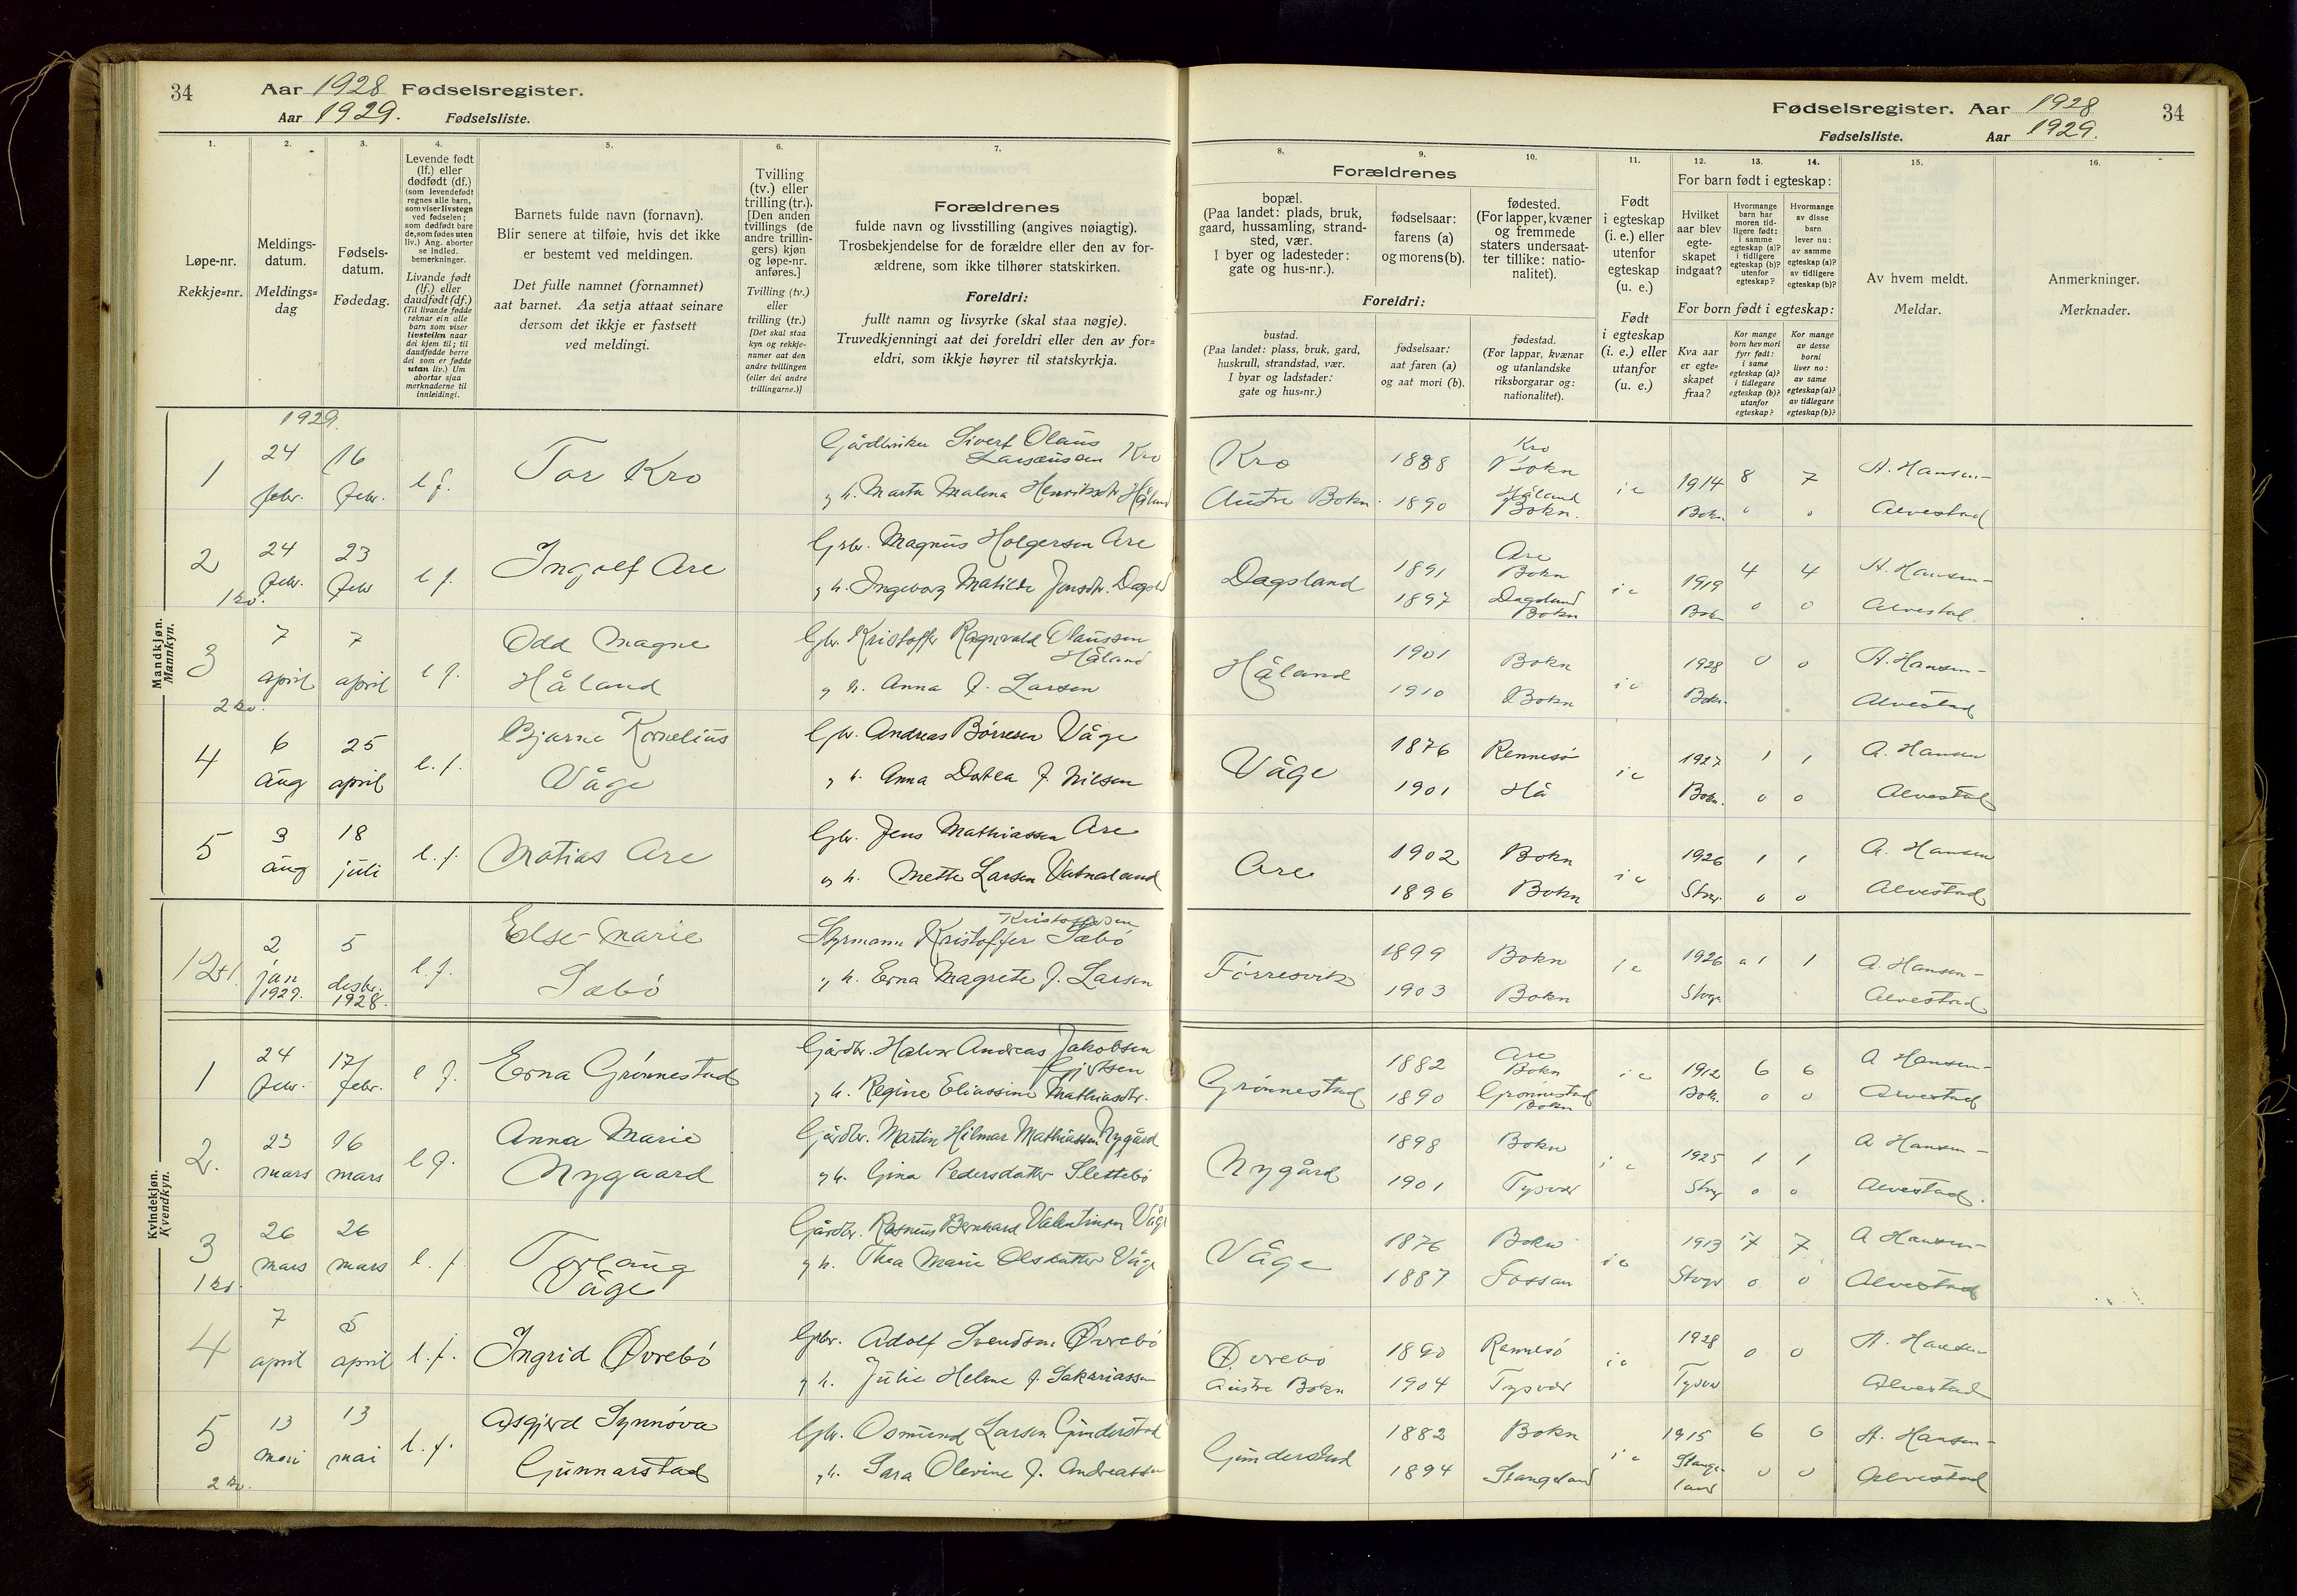 34
Aar 1928 Fødselsregister.
Aar 1929. Fødselsliste.
1.
2.
3.
4.
5.
6.
7.
Løpe-nr.
Rekkje=nr.
Meldings-
datum.
Meldings=
dag
Fødsels-
datum.
Fødedag.
Levende født
(lf.) eller
dødfødt (df.)
(som levendefødt
regnes alle barn,
som viser livstegn
ved fødselen;
som dødfødt bare
de, som fødes uten
liv.) Ang. aborter
se indled.
bemerkninger.
Livande født
(lf.) eller
daudfødt (df.)
(Til livande fødde
reknar ein alle
barn som viser
livsteikn naar
dei kjem til; til
daudfødde berre
dei som er fødde
utan liv.) Um
abortar sjaa
merknaderne til
innleidingi.
Barnets fulde navn (fornavn).
Blir senere at tilføie, hvis det ikke
er bestemt ved meldingen.
Det fulle namnet (fornamnet)
aat barnet. Aa setja attaat seinare
dersom det ikkje er fastsett
ved meldingi.
Tvilling
(tv.) eller
trilling (tr.).
[Den anden
tvillings (de
andre trillin-
gers) kjøn
og løpe-nr.
anføres.]
Tvilling (tv.)
eller
trilling (tr.)
[Det skal staa
kyn og rekkje-
numer aat den
andre tvillingen
(eller dei andre
trillingarne.)]
Forældrenes
fulde navn og livsstilling (angives nøiagtig).
Trosbekjendelse for de forældre eller den av for-
ældrene, som ikke tilhører statskirken.
Foreldri:
fullt namn og livsyrke (skal staa nøgje).
Truvedkjenningi aat dei foreldri eller den av for=
eldri, som ikkje høyrer til statskyrkja.
Mandkjøn.
Mannkyn.
1929.
1
24 febr.
16 febr.
l f.
Tor Kro
Gårdbruker Sivert Olaus
Larsensen Kro
og h. Marta Malena Henriksdtr Håland
2
24 febr.
23 febr
l f.
Ingolf Are
Grbr. Magnus Holgersen Are
og h. Ingeborg Matilde Jonsdtr. Dagsld
1 kv.
3
7 april
7 april
l f.
Odd Magne
Håland
Gbr. Kristoffer Ragnvald Olaussen
Håland
og h. Anna f. Larsen
2 kv.
4
6 aug
25 april
l. f.
Bjarne Kornelius
Våge
Gbr. Andreas Børresen Våge
og h. Anna Dortea f. Nilsen
5
3 aug
18 juli
l. f.
Matias Are
Gbr. Jens Mathiassen Are
og h. Mette Larsen Vatnaland
12+1
2 jan 1929.
5 desbr. 1928.
l. f.
Else-Marie
Sæbö
Kristoffersen
Styrmann Kristoffer Sæbö
og h. Erna Magrete f. Larsen
Kvindekjøn.
Kvendkyn.
1
24 febr.
17/ febr.
l f.
Erna Grönnestad
Gårdbr. Halvor Andreas Jakobsen
og h. Regine Eliassine Mathiasdtr.
2.
23 mars
16 mars
l f.
Anna Marie
Nygaard
Gårdbr. Martin Hilmar Mathiassen Nygård
og h. Gina Pedersdatter Slettebö
3
26 mars
26 mars
l. f
Torlaug
Våge
Gårdbr. Rasmus Bernhard Valentinsen Våge
og h. Thea Marie Olsdatter Våge
1 kv.
4
7 april
5 april
l. f.
Ingrid Øvrebö
Grbr. Adolf Svendsen Øvrebö
og h. Julie Helene f. Sakariassen
5
13 mai
13 mai
l. f.
Asgjerd Synnöva
Gunnarstad
Gbr. Osmund Larsen Gunderstad
og h. Sara Olevine f. Andreassen
2 kv.
Fødselsregister. Aar 1928
34
Fødselsliste. Aar 1929.
8.
9.
10.
11.
12.
13.
14.
15.
16.
Forældrenes
bopæl.
(Paa landet: plads, bruk,
gaard, hussamling, strand-
sted, vær.
I byer og ladesteder:
gate og hus-nr.).
fødselsaar:
farens (a)
og morens (b).
fødested.
(For lapper, kvæner
og fremmede
staters undersaat-
ter tillike: natio-
nalitet).
Foreldri:
bustad.
(Paa landet: plass, bruk, gard,
huskrull, strandstad, vær.
I byar og ladstader:
gate og hus=nr.)
fødselsaar:
aat faren (a)
og aat mori (b).
fødestad.
(For lappar, kvænar
og utanlandske
riksborgarar og:
nationalitet).
Født
i egteskap
(i. e.) eller
utenfor
egteskap
(u. e.)
Født
i egteskap
(i. e.) eller
utanfor
(u. e.)
For barn født i egteskap:
Hvilket
aar blev
egte-
skapet
indgaat?
Hvormange
barn har
moren tid-
ligere født:
i samme
egteskap (a)?
i tidligere
egteskap (b)?
utenfor
egteskap?
Hvormange
av disse
barn
lever nu:
av samme
egteskap (a)?
av tidligere
egteskap (b)?
For born født i egteskap:
Kva aar
er egte=
skapet
fraa?
Kor mange
born hev mori
fyrr født:
i same
egteskap (a)?
i tidlegare
egteskap (b)?
utanfor
egteskap?
Kor mange
av desse
borni
liver no:
av same
egteskap (a)?
av tidlegare
egteskap (b)?
Av hvem meldt.
Meldar.
Anmerkninger.
Merknader.
Kro
Austre Bokn.
1888
1890
Kro
Bokn
Håland
Bokn.
i e
1914
Bokn
8 7
0 0
A. Hansen-
Alvestad
Dagsland
1891
1897
Are
Bokn
Dagsland
Bokn
i e
1919
Bokn
4 4
0 0
A. Hansen-
Alvestad.
Håland
1901
1910
Bokn
Bokn
i e
1928
Bokn.
0 0
A. Hansen-
Alvestad
Våge
1876
1901
Rennesö
Hå
i e
1927
Bokn.
1 1
0 0
A. Hansen
Alvestad
Are
1902
1896
Bokn
Bokn
i e
1926
1 1
0 0
A. Hansen
Alvestad
Förresvik
1899
1903
Bokn
Bokn
i e
1926
a 1 1
A. Hansen-
Alvestad
Grönnestad
1882
1890
Are
Bokn
Grönnestad
Bokn
i e
1912
Bokn.
6 6
0 0
A Hansen-
Alvestad
Nygård
1898
1901
Bokn
Tysvær
i e
1925
1 1
0 0
A Hansen-
Alvestad.
Våge
1876
1887
Bokn
Fossan
i e
1913
7 7
0 0
A Hansen-
Alvestad
Øvrebö
Austre Bokn
1890
1904
Rennesö
Tysvær
i e
1928
Tysvær
0 0
A. Hansen
Alvestad
Gunderstad
1882
1894
Bokn
Stangeland
i e
1915
Stange-
land
6 6
0 0
A. Hansen-
Alvestad